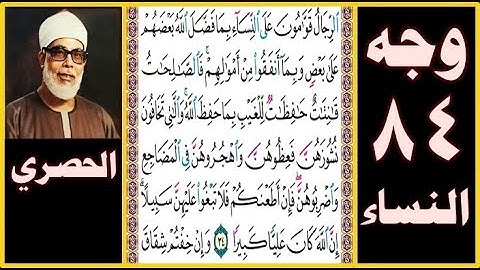 وجه
٨٤
النساء
الرِّجَالُ قَوَّامُونَ عَلَى النِّسَاءِ بِمَا فَضَّلَ اللَّهُ بَعْضَهُمْ
عَلَى بَعْضٍ وَبِمَا أَنفَقُوا مِنْ أَمْوَالِهِمْ فَالصَّالِحَاتُ
قَانِتَاتٌ حَافِظَاتٌ لِّلْغَيْبِ بِمَا حَفِظَ اللَّهُ وَالَّتِي تَخَافُونَ
نُشُوزَهُنَّ فَعِظُوهُنَّ وَاهْجُرُوهُنَّ فِي الْمَضَاجِعِ
وَاضْرِبُوهُنَّ فَإِنْ أَطَعْنَكُمْ فَلَا تَبْغُوا عَلَيْهِنَّ سَبِيلًا
إِنَّ اللَّهَ كَانَ عَلِيًّا كَبِيرًا ٣٤ وَإِنْ خِفْتُمْ شِقَاقَ
الحصري